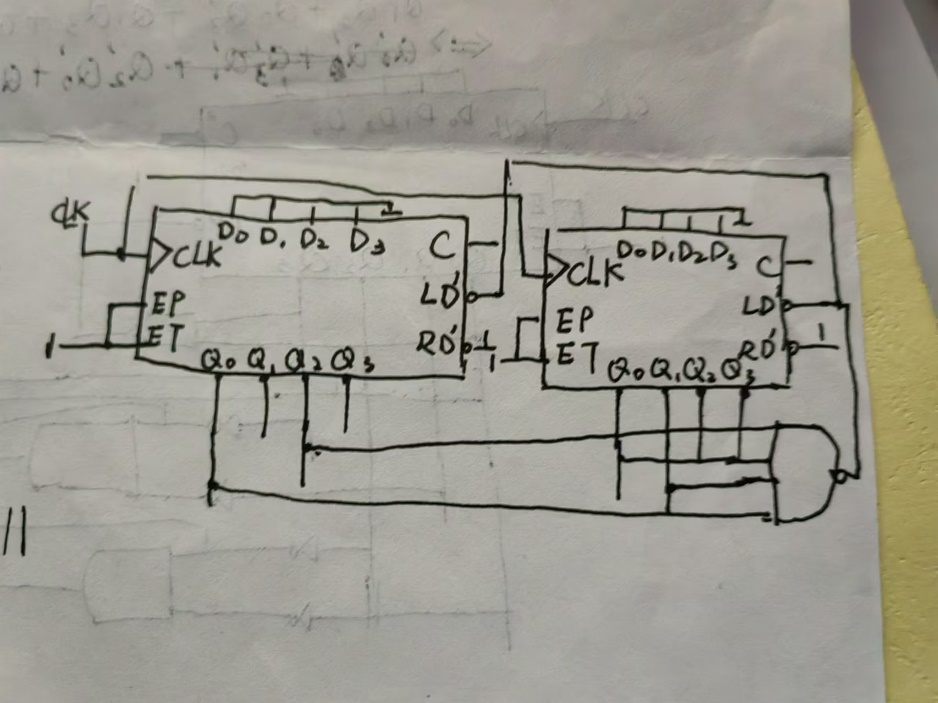 CLK
D0 D1 D2 D3 1
CLK
C
LD'
EP
ET
1
RD' 1
Q0 Q1 Q2 Q3
D0 D1 D2 D3 1
CLK
C
LD'
EP
ET
1
RD' 1
Q0 Q1 Q2 Q3